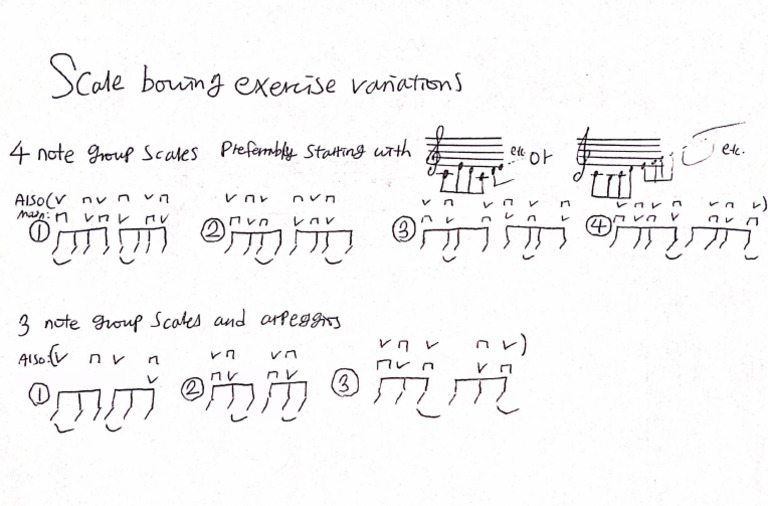 Scale bowing exercise variations
4 note group scales Preferrably starting with etc or etc.
Also (v n v n v n v n v n v v n v n v n v n v)
Main: n v n v n v n v n v n v n v n v n v n v n v n v n v n
① ② ③ ④
3 note group scales and arpeggios
Also: (v n v n v n v n v n v n v)
v n v n v n v n v n
① ② ③